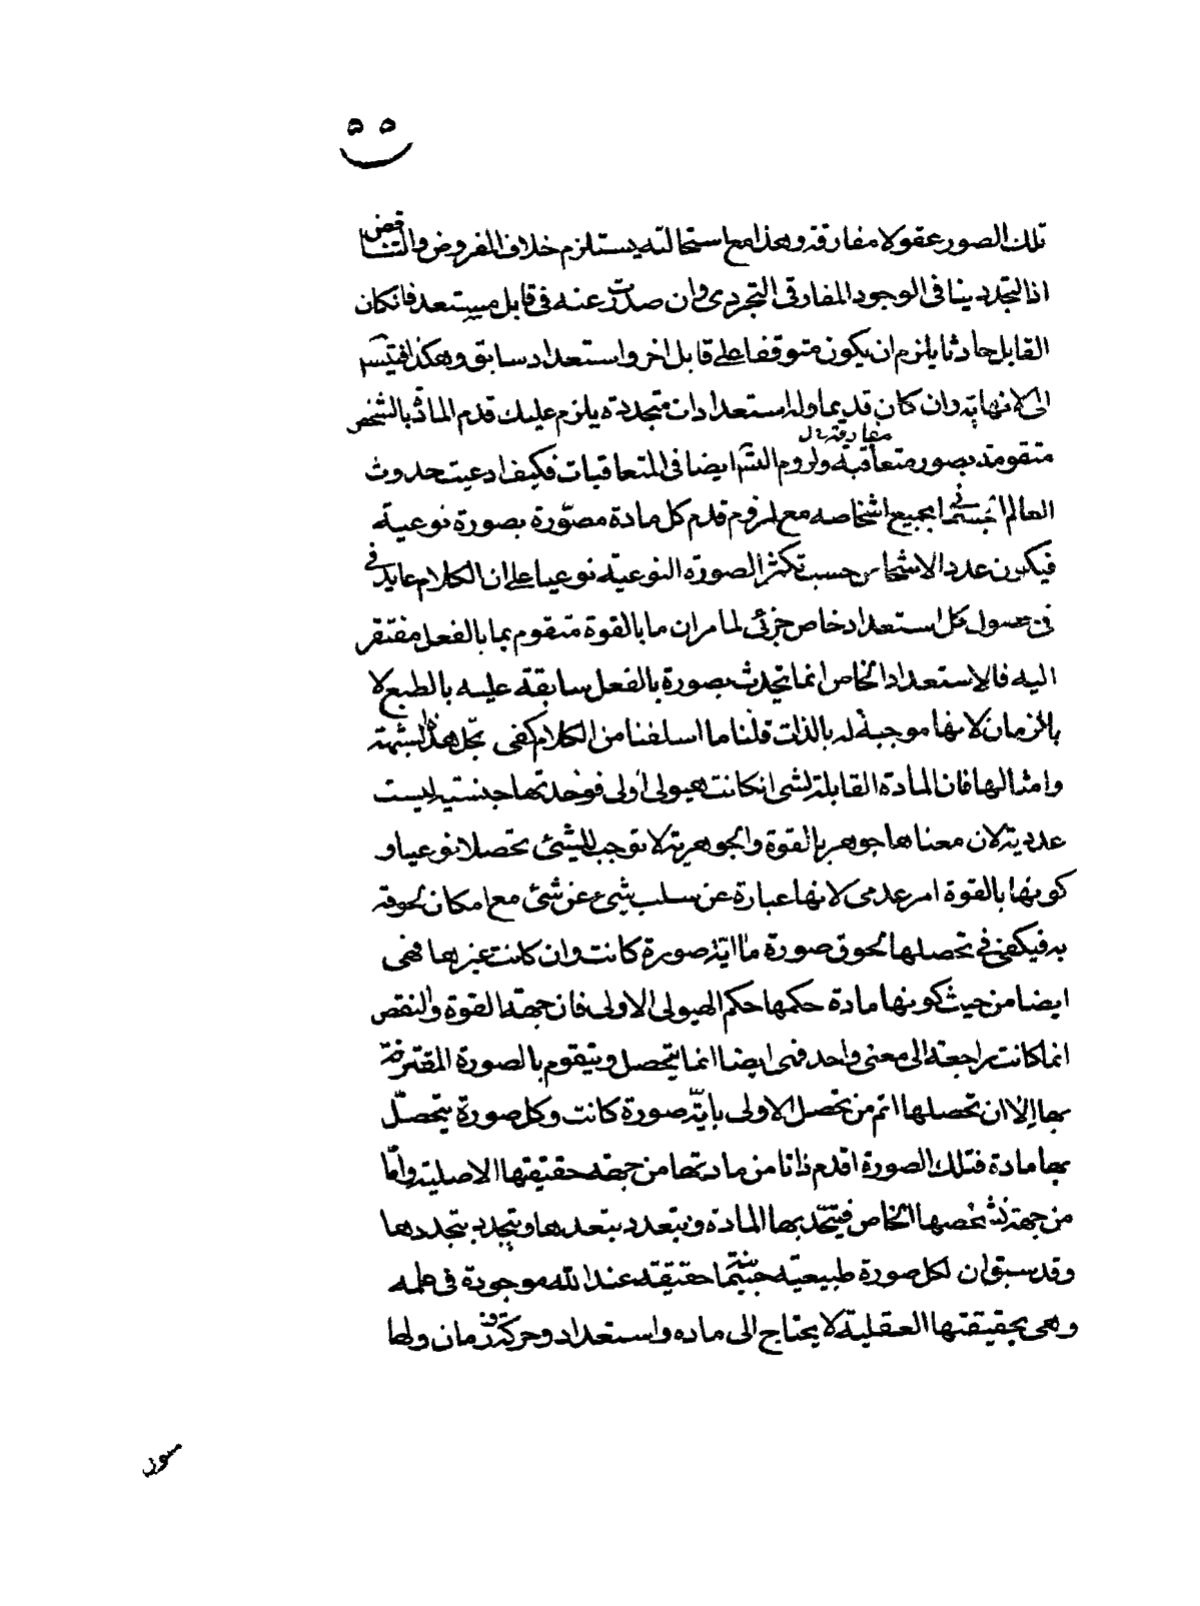 ٥٥
تلك الصور عقولا مفارقة وهذا مع استحالته يستلزم خلاف المفروض والتناقض
اذ التجدد ينافى الوجود المفارقى التجردى وان صدرت عنه فى قابل مستعد فان كان
القابل حادثا يلزم ان يكون متوقفا على قابل اخر واستعداد سابق وهكذا فيتسم
الى لا نهاية وان كان قديما وله استعدادات متجددة يلزم عليك قدم المادة بالشخص
مفارقة
متقومة بصور متعاقبة ولزوم التسم ايضا فى المتعاقبات فكيف ادعيت حدوث
العالم الجسمانى بجميع اشخاصه مع لزوم قدم كل مادة مصوّرة بصورة نوعية
فيكون عدد الاشخاص حسب تكثر الصورة النوعية نوعيا على ان الكلام عايد فى
فى حصول كل استعداد خاص جزئى لما مر ان ما بالقوة متقوم بما بالفعل مفتقر
اليه فالاستعداد الخاص انما يحدث بصورة بالفعل سابقة عليه بالطبع لا
بالزمان لانها موجبة له بالذات قلنا ما اسلفنا من الكلام كفى بحل هذه الشبهة
وامثالها فان المادة القابلة لشى ان كانت هيولى اولى فوحدتها جنسية ليست
عددية لان معناها جوهر بالقوة والجوهرية لا توجب للشئ تحصلا نوعيا و
كونها بالقوة امر عدمى لانها عبارة عن سلب شئ عن شئ مع امكان لحوقه
به فيكفى فى تحصلها لحوق صورة ما اية صورة كانت وان كانت غيرها فهى
ايضا من حيث كونها مادة حكمها حكم الهيولى الاولى فان جهة القوة والنقص
انما كانت راجعة الى معنى واحد فهى ايضا انما يتحصل ويتقوم بالصورة المقترنة
بها الا ان تحصلها اتم من تحصل الاولى باية صورة كانت وكل صورة يتحصّل
بها مادة فتلك الصورة اقدم ذاتا من مادتها من جهة حقيقتها الاصلية وامّا
من جهة تشخصها الخاص فيتحد بها المادة ويتعدد بتعددها ويتجدد بتجددها
وقد سبق ان لكل صورة طبيعية جسمانية حقيقة عند الله موجودة فى علمه
وهى بحقيقتها العقلية لا يحتاج الى مادة واستعداد وحركة وزمان ولها